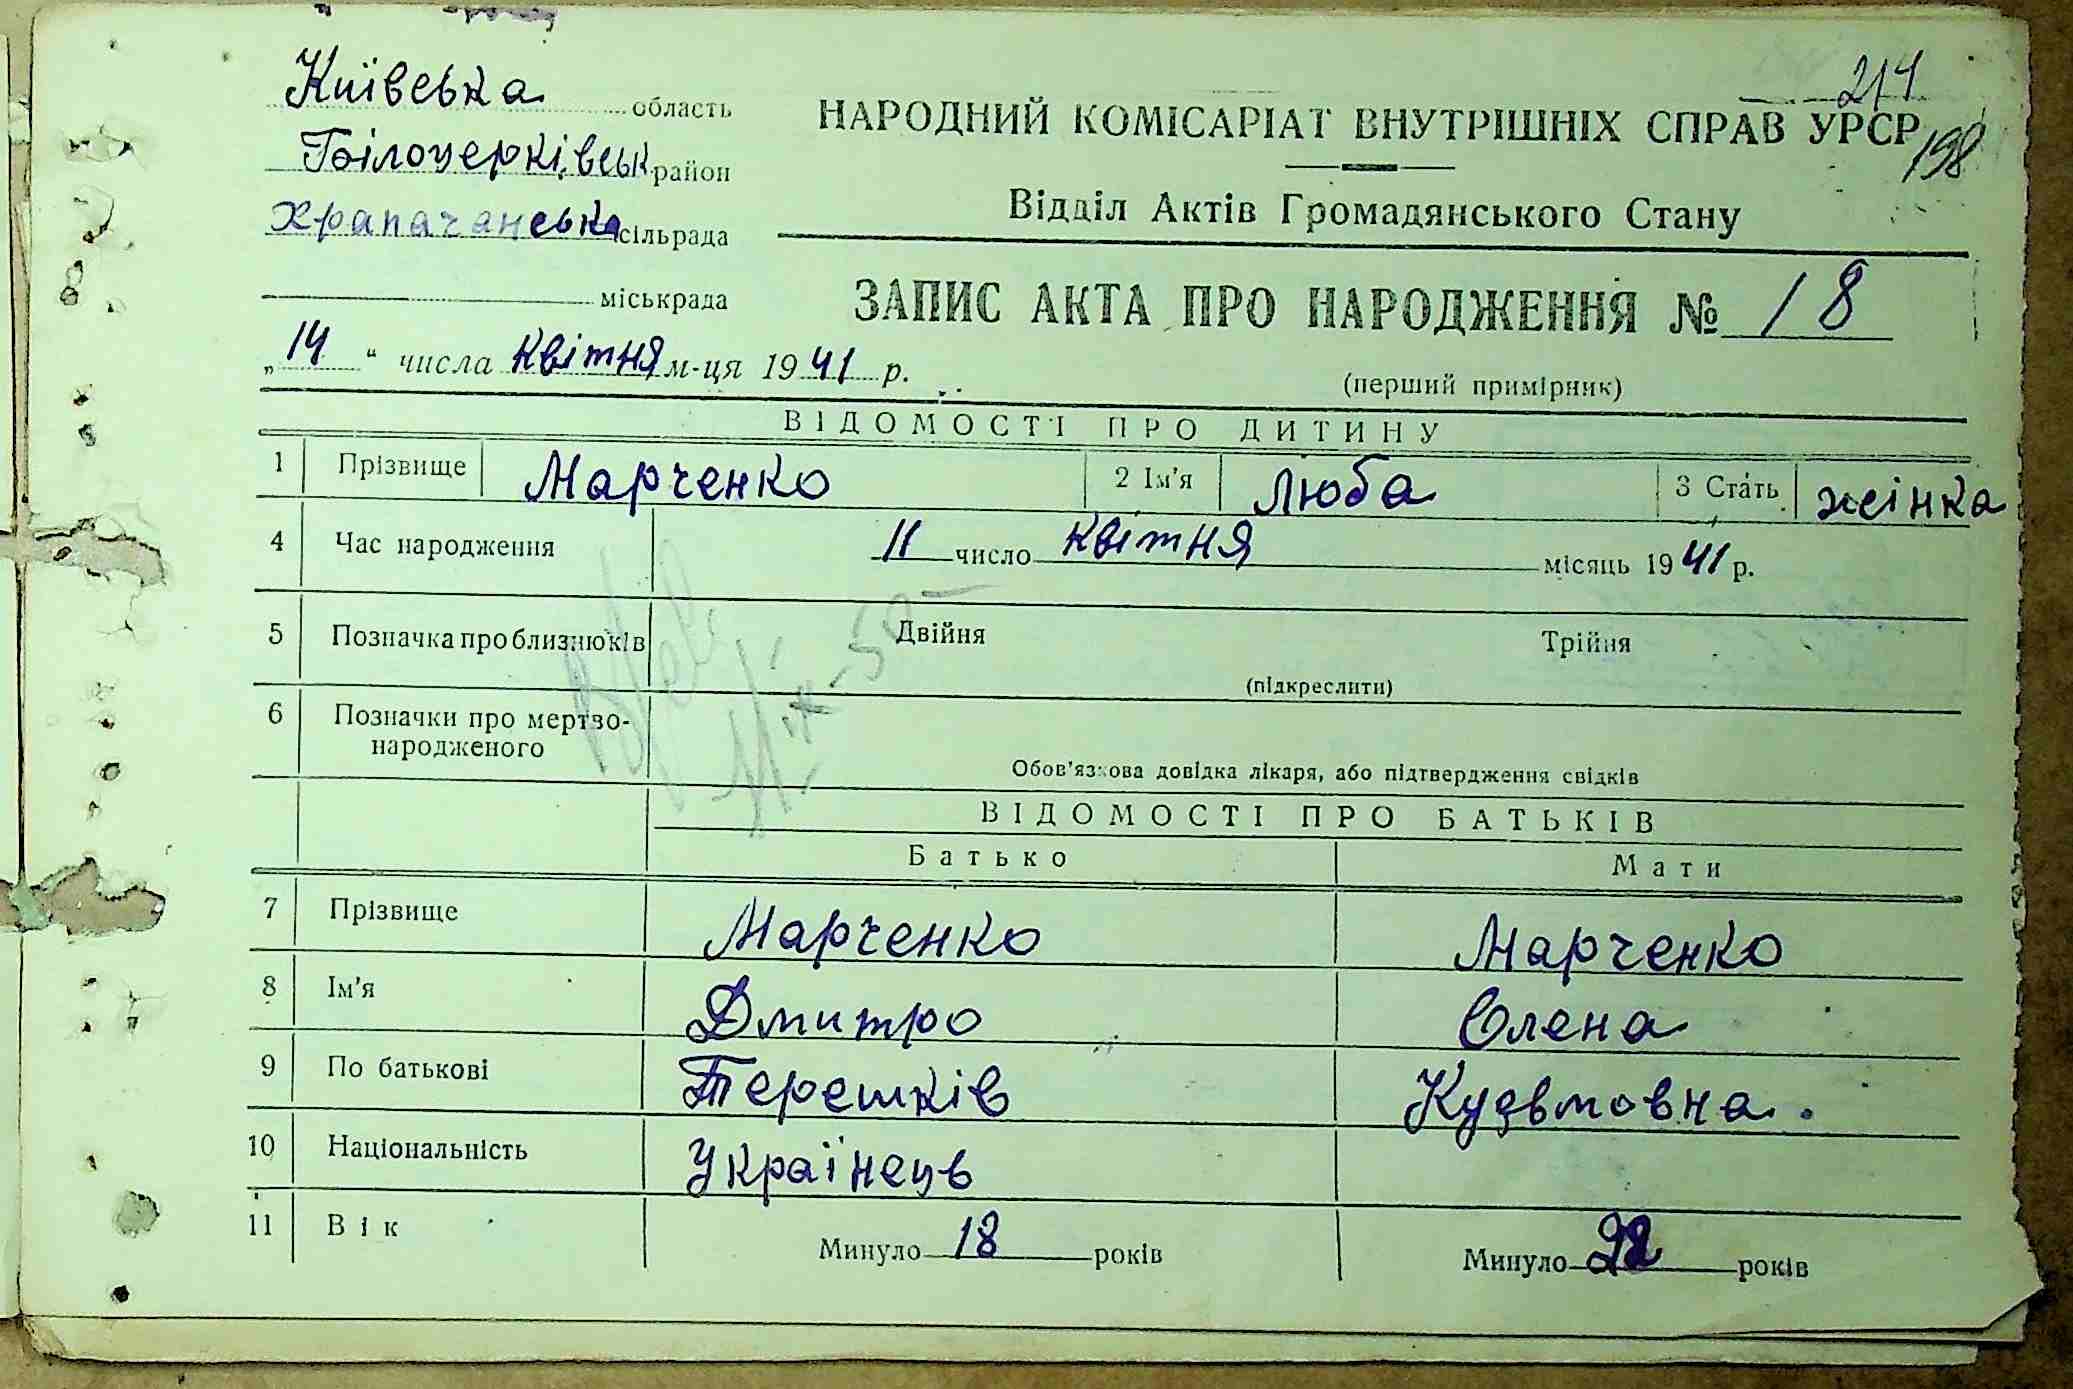 214
198
Київська область
Білоцерківськ район
Храпачанська сільрада
міськрада
„14“ числа квітня м-ця 1941 р.
НАРОДНИЙ КОМІСАРІАТ ВНУТРІШНІХ СПРАВ УРСР
Відділ Актів Громадянського Стану
ЗАПИС АКТА ПРО НАРОДЖЕННЯ № 18
(перший примірник)
ВІДОМОСТІ ПРО ДИТИНУ
1 Прізвище Марченко 2 Ім'я Люба 3 Стать жінка
4 Час народження 11 число квітня місяць 1941 р.
5 Позначка про близнюків Двійня Трійня
(підкреслити)
6 Позначки про мертво-
народженого
Обов'язкова довідка лікаря, або підтвердження свідків
ВІДОМОСТІ ПРО БАТЬКІВ
Батько Мати
7 Прізвище Марченко Марченко
8 Ім'я Дмитро Олена
9 По батькові Терешків Кузьмовна.
10 Національність Українець
11 Вік Минуло 18 років Минуло років